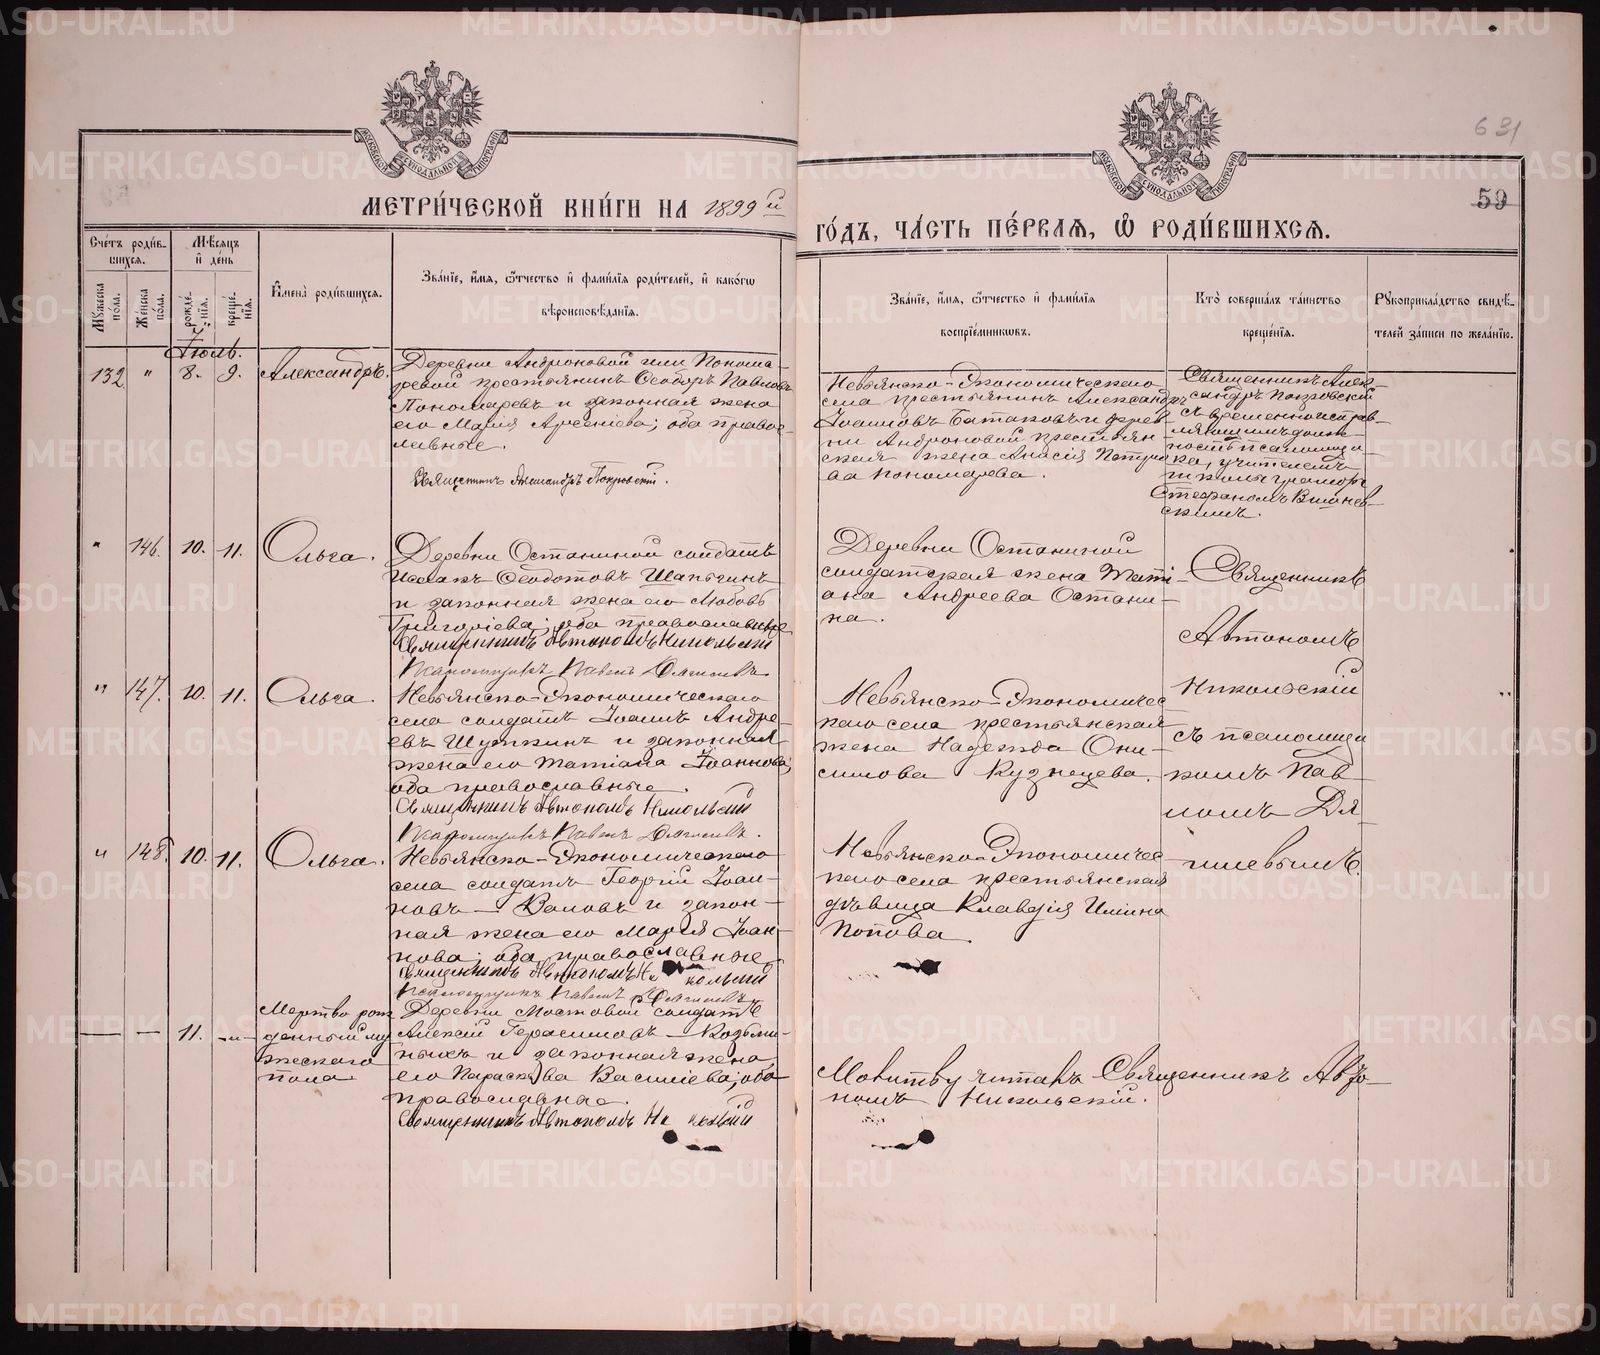 631
59
МЕТРИ́ЧЕСКОЙ КНИ́ГИ НА 1899 й
ГО́ДЪ, ЧА́СТЬ ПЕ́РВАѦ, Ѡ РОДИ́ВШИХСѦ.
МОСКОВСКОЙ СѴНОДАЛЬНОЙ ТИПОГРАФІИ
МОСКОВСКОЙ СѴНОДАЛЬНОЙ ТИПОГРАФІИ
Сче́тъ роди́в-
шихсѧ.
Мꙋжеска по́ла.
Же́нска по́ла.
Мѣ́сѧцъ
и҆ де́нь
рожде́-
нїѧ.
креще́-
нїѧ.
И҆мена̀ роди́вшихсѧ.
Зва́нїе, и҆́мѧ, ѻ҆́тчество и҆ фами́лїѧ роди́телей, и҆ како́гѡ
вѣроисповѣ́данїѧ.
Зва́нїе, и҆́мѧ, ѻ҆́тчество и҆ фами́лїѧ
воспрїе́мниковъ.
Кто̀ соверша́лъ та́инство
креще́нїѧ.
Рꙋкоприкла́дство свидѣ́-
телей за́писи по жела́нїю.
Іюль.
132 " 8. 9. Александръ.
Деревни Андроновой или Понома-
ревой крестьянинъ Ѳеодоръ Павловъ
Пономаревъ и законная жена
его Марія Арсеніева; оба правос-
лавные.
Священникъ Александръ Покровскій.
Невьянско-Экономическаго
села крестьянинъ Александръ
Іоанновъ Батаковъ и дерев-
ни Андроновой крестьян-
ская жена Анисія Петро
ва Пономарева.
Священникъ Алек-
сандръ Покровскій
съ временно исправ-
ляющимъ долж-
ность псаломщи-
ка, учителемъ
школы грамоты
Стефаномъ Вишнев-
скимъ.
" 146. 10. 11. Ольга.
Деревни Останиной солдатъ
Исаакъ Ѳеодотовъ Шапыгинъ
и законная жена его Любовь
Григоріева; оба православные
Священникъ Автономъ Никольскій
Псаломщикъ Павелъ Дягилевъ
Деревни Останиной
солдатская жена Тати-
ана Андреева Остани-
на.
Священникъ
Автономъ
Никольскій
съ псаломщи
комъ Пав-
ломъ Дя-
гилевымъ.
" 147. 10. 11. Ольга.
Невьянско-Экономическаго
села солдатъ Іоаннъ Андре-
евъ Шуткинъ и законная
жена его Татіана Іоаннова;
оба православные.
Священникъ Автономъ Никольскій
Псаломщикъ Павелъ Дягилевъ.
Невьянско-Экономичес
каго села крестьянская
жена Надежда Они-
симова Кузнецева.
" 148. 10. 11. Ольга.
Невьянско-Экономическаго
села солдатъ Георгій Іоан-
новъ — Валовъ и закон-
ная жена его Марія Іоан-
нова; оба православные
Священникъ Автономъ Никольскій
Псаломщикъ Павелъ Дягилевъ
Невьянско-Экономичес-
каго села крестьянская
дѣвица Клавдія Иліина
Попова.
— — 11. -„-
Мертво рож
денный му
жескаго
пола
Деревни Мостовой солдатъ
Алексій Герасимовъ — Козьми-
ныхъ и законная жена
его Параскева Василіева; оба
православные.
Священникъ Автономъ Никольскій
Молитву читалъ Священникъ Авто-
номъ Никольскій.